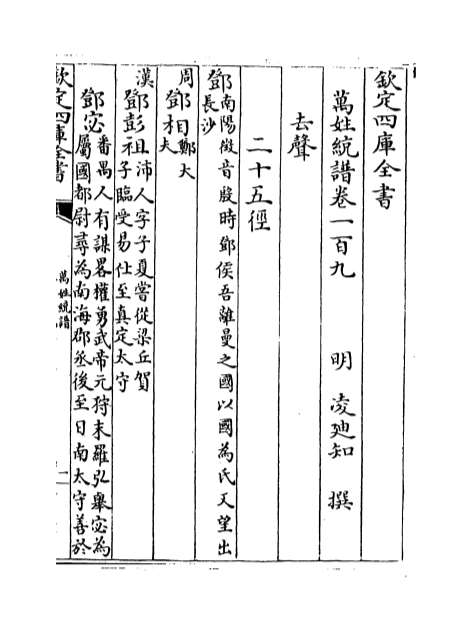 欽定四庫全書
萬姓統譜卷一百九
明 凌迪知 撰
去聲
二十五徑
鄧
南陽徵音殷時鄧侯吾離曼之國以國為氏又望出
長沙
周
鄧相
鄭大
夫
漢
鄧彭祖
沛人字子夏嘗從梁丘賀
子臨受易仕至真定太守
鄧宓
番禺人有謀畧權勇武帝元狩末羅弘舉宓為
屬國都尉尋為南海郡丞後至日南太守善於
欽定四庫全書
萬姓統譜
一